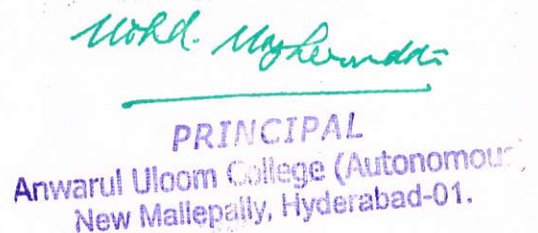 Mohd.
PRINCIPAL
Anwarul Uloom College (Autonomous
New Mallepally, Hyderabad-01.